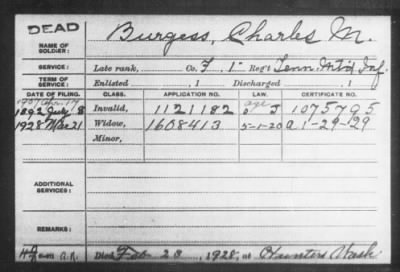 DEAD
NAME OF SOLDIER: Burgess, Charles M.
SERVICE: Late rank, Co. F 1 Reg't Tenn. Mt'd Inf.
TERM OF SERVICE: Enlisted 1 Discharged 1
DATE OF FILING. CLASS. APPLICATION NO. LAW. CERTIFICATE NO.
1907 Apr. 17 age
1892 July 8 Invalid, 1121182 J 1075795
1928 Mar 21 Widow, 1608413 5-1-20 a 1-29-29
Minor,
ADDITIONAL SERVICES:
REMARKS:
Died Feb 28, 1928, at Hunters Wash